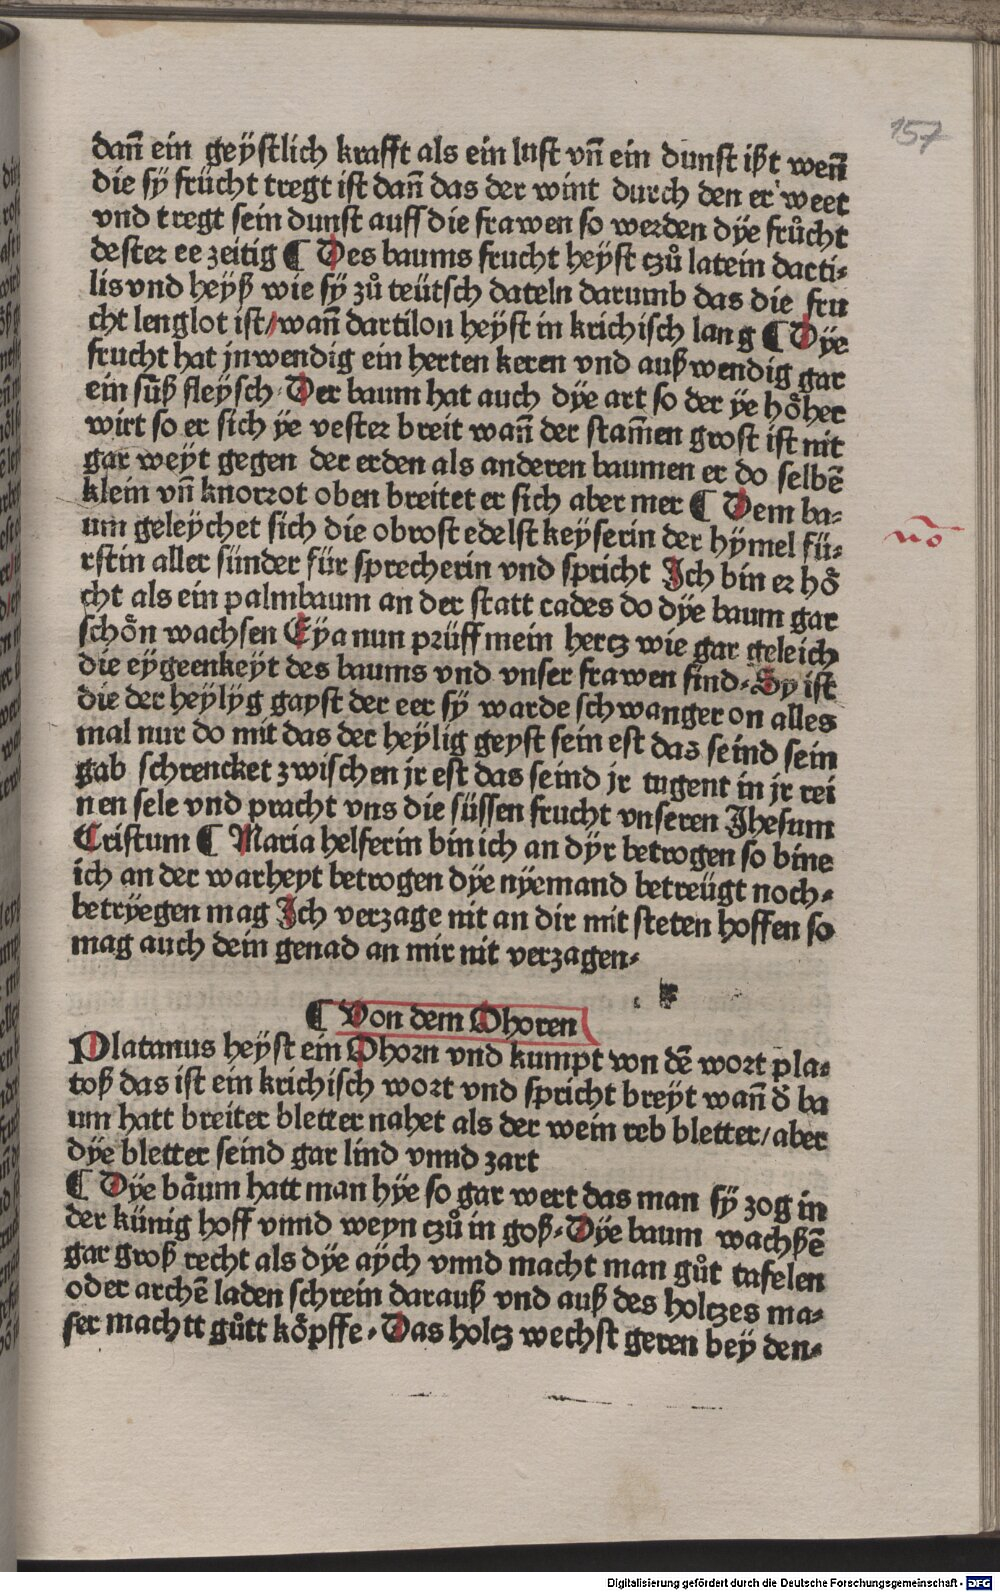 157
dañ ein geÿſtlich krafft als ein luſt vñ ein dunſt iſt weñ
die ſÿ frücht tregt iſt dañ das der wint durch den er weet
vnd tregt ſein dunſt auff die frawen ſo werden dÿe frůcht
deſter ee zeitig ¶ Des baums frucht heÿſt tzů latein dacti⸗
lis vnd heÿß wie ſÿ zů teütſch dateln darumb das die fru
cht lenglot iſt/ wañ dartilon heÿſt in krichiſch lang ¶ Dÿe
frucht hat jnwendig ein herten keren vnd außwendig gar
ein ſüß fleÿſch. Der baum hat auch dÿe art ſo der ÿe hoͤher
wirt ſo er ſich ÿe veſter breit wañ der ſtam̄en groſt iſt nit
gar weÿt gegen der erden als anderen baumen er do ſelbē
klein vñ knorrot oben breitet er ſich aber mer ¶ Dem ba⸗
um geleÿchet ſich die obroſt edelſt keÿſerin der hÿmel fü⸗
rſtin aller ſünder für ſprecherin vnd ſpricht Ich bin er hoͤ
cht als ein palmbaum an der ſtatt cades do dÿe baum gar
ſchoͤn wachſen Eÿa nun prüff mein hertz wie gar geleich
die eÿgeenkeÿt des baums vnd vnſer frawen ſind. Sy iſt
die der heÿlÿg gayſt der eer ſÿ warde ſchwanger on alles
mal nur do mit das der heÿlig geyſt ſein eſt das ſeind ſein
gab ſchrencket zwiſchen jr eſt das ſeind jr tugent in jr rei
nen ſele vnd pracht vns die ſüſſen frucht vnſeren Jheſum
Criſtum ¶ Maria helferin bin ich an dÿr betrogen ſo bine
ich an der warheyt betrogen dÿe nÿemand betreügt noch⸗
betrÿegen mag Ich verzage nit an dir mit ſteten hoffen ſo
mag auch dein genad an mir nit verzagen.
¶ Von dem Ohoren
PLatanus heÿſt ein Ohorn vnd kumpt von dē wort pla⸗
toß das iſt ein krichiſch wort vnd ſpricht breÿt wañ d̓ ba
um hatt breiter bletter nahet als der wein reb bletter/ aber
dÿe bletter ſeind gar lind vnnd zart
¶ Dÿe baͤum hatt man hÿe ſo gar wert das man ſÿ zog in
der künig hoff vnnd weyn tzů in goß. Dÿe baum wachßē
gar groß recht als dÿe aÿch vnnd macht man gůt tafelen
oder archē laden ſchrein darauß vnd auß des holtzes ma⸗
ſer machtt gůtt koͤpffe. Das holtz wechſt geren beÿ den⸗
Digitalisierung gefördert durch die Deutsche Forschungsgemeinschaft - DFG